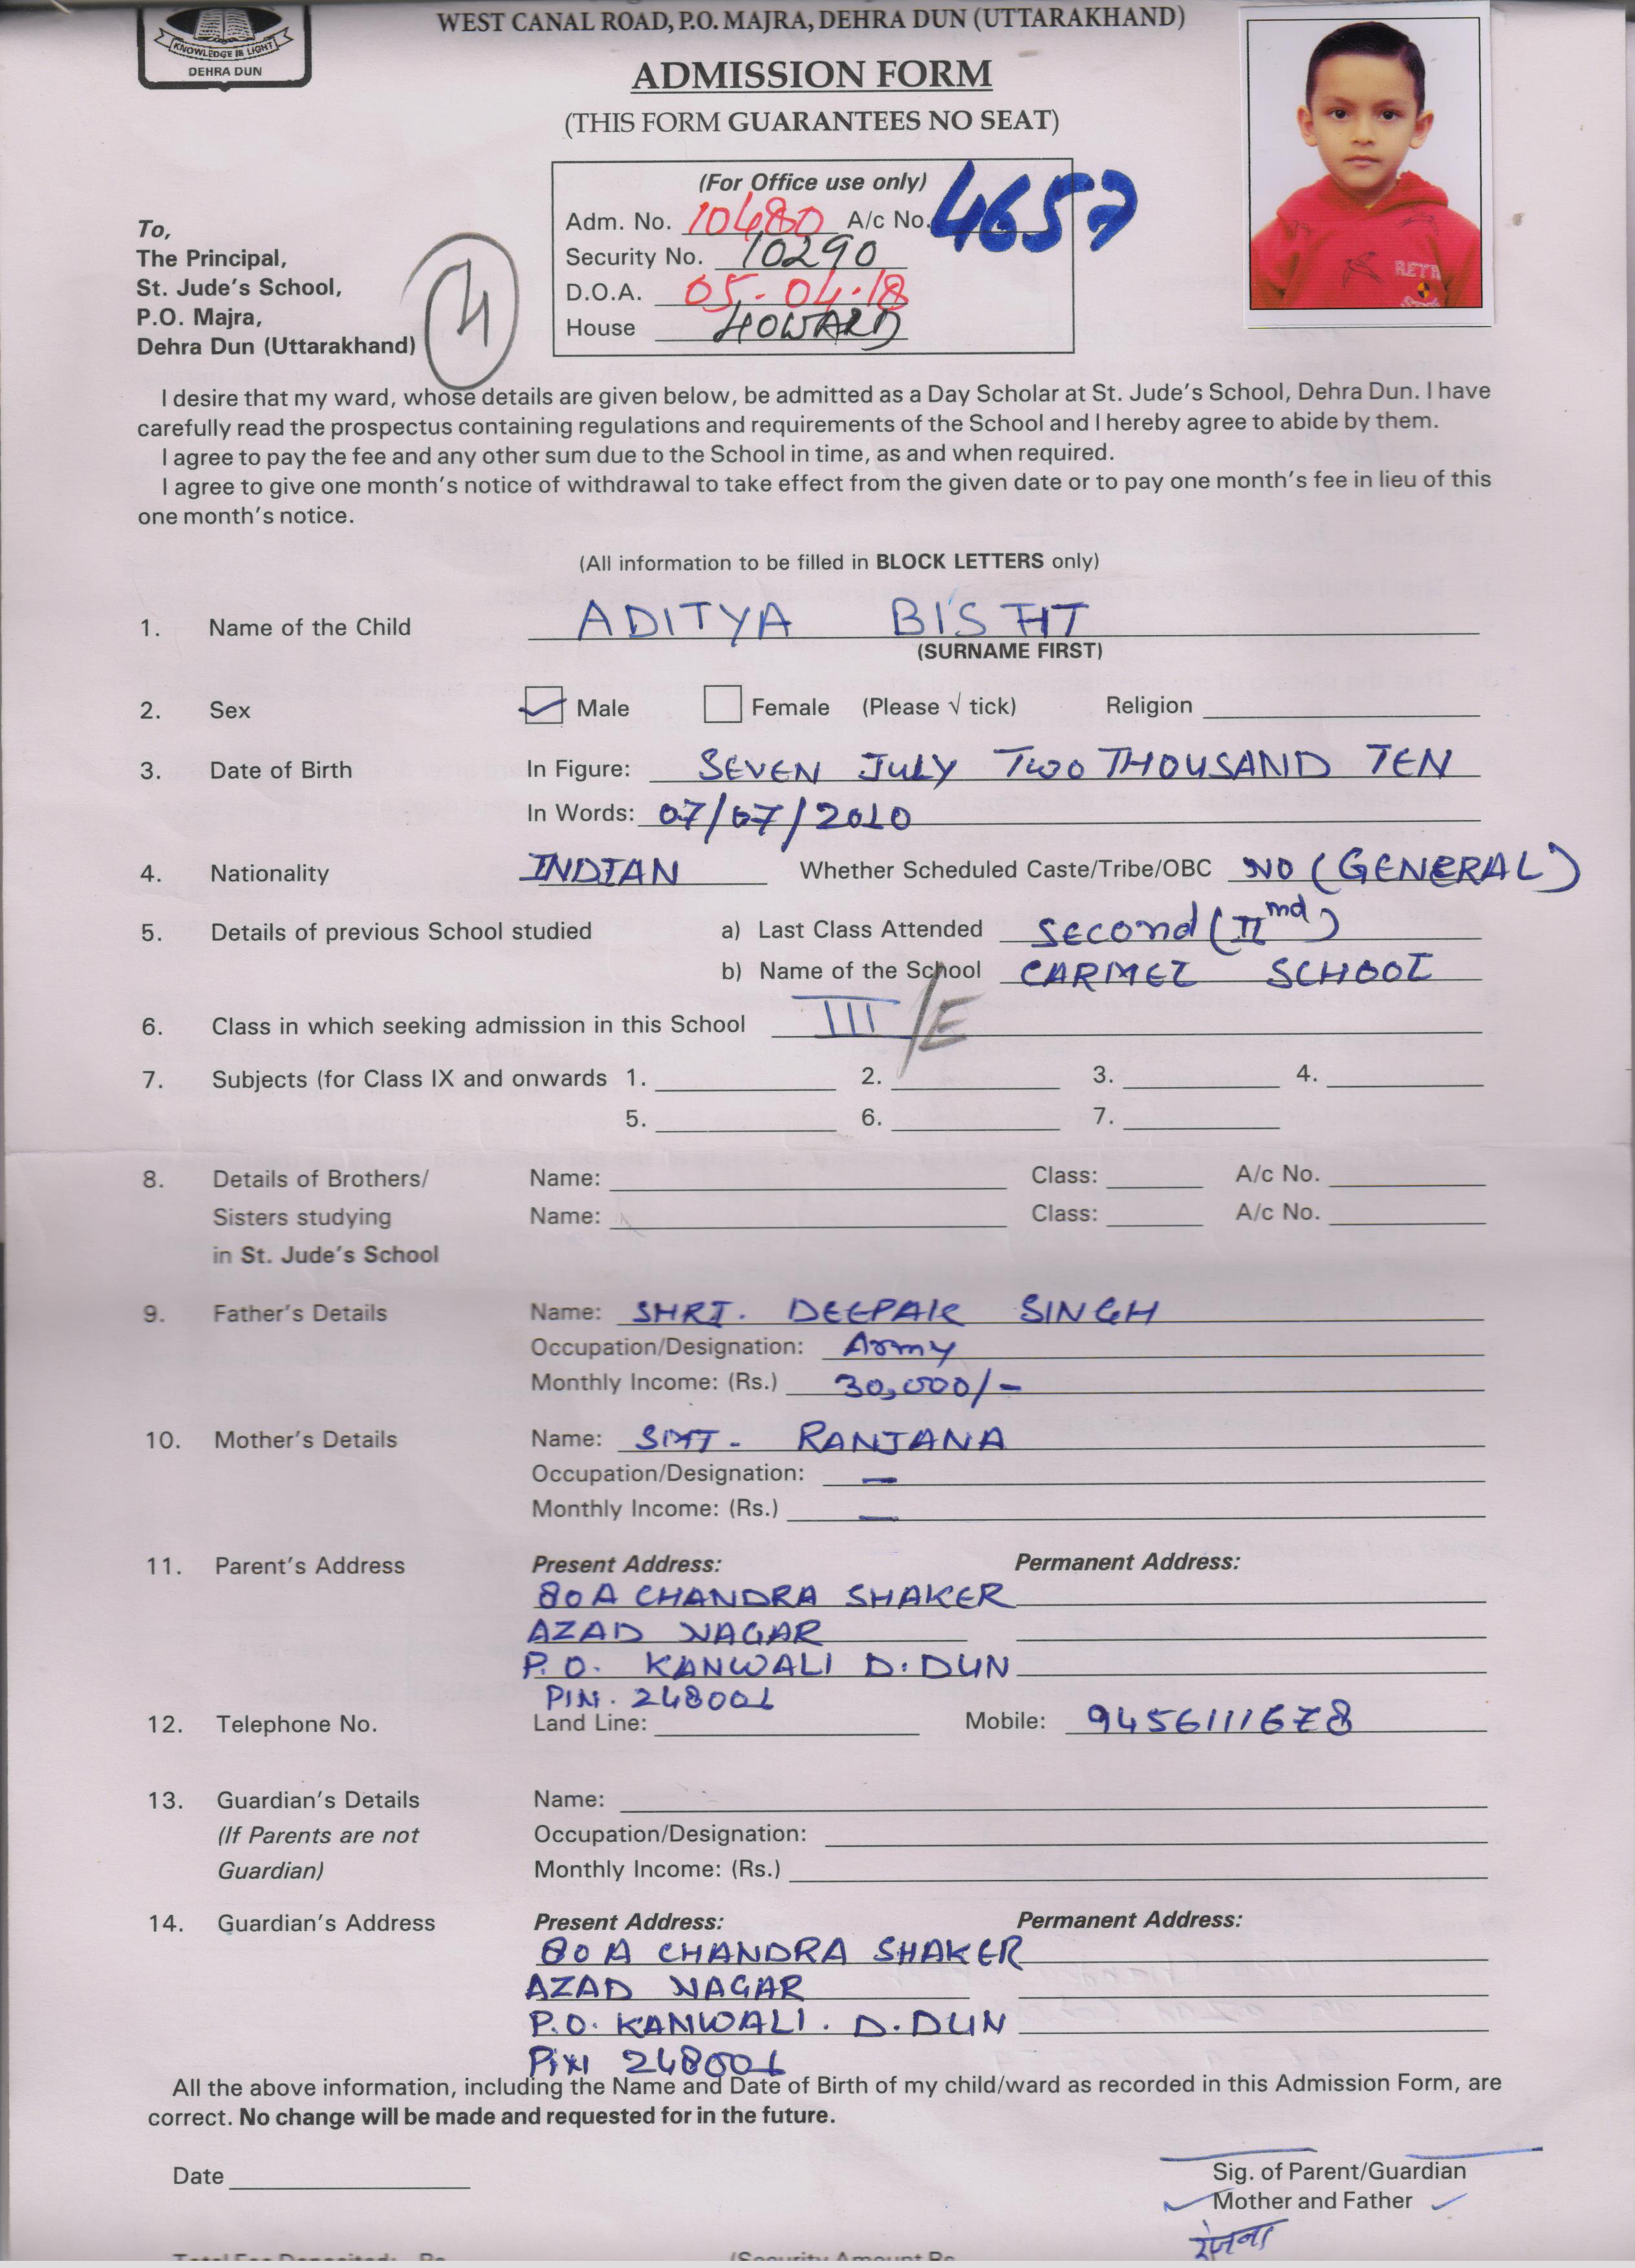 WEST CANAL ROAD, P.O. MAJRA, DEHRA DUN (UTTARAKHAND)
KNOWLEDGE IS LIGHT
DEHRA DUN
ADMISSION FORM
(THIS FORM GUARANTEES NO SEAT)
(For Office use only)
Adm. No. 10480 A/c No. 4657
Security No. 10290
D.O.A. 05-04-18
House HOWARD
To,
The Principal,
St. Jude's School,
P.O. Majra,
Dehra Dun (Uttarakhand)
RETR
I desire that my ward, whose details are given below, be admitted as a Day Scholar at St. Jude's School, Dehra Dun. I have
carefully read the prospectus containing regulations and requirements of the School and I hereby agree to abide by them.
I agree to pay the fee and any other sum due to the School in time, as and when required.
I agree to give one month's notice of withdrawal to take effect from the given date or to pay one month's fee in lieu of this
one month's notice.
(All information to be filled in BLOCK LETTERS only)
1. Name of the Child ADITYA BISHT
(SURNAME FIRST)
2. Sex Male Female (Please √ tick) Religion
3. Date of Birth In Figure: SEVEN JULY TWO THOUSAND TEN
In Words: 07/07/2010
4. Nationality INDIAN Whether Scheduled Caste/Tribe/OBC NO (GENERAL)
5. Details of previous School studied a) Last Class Attended Second (IInd)
b) Name of the School CARMEL SCHOOL
6. Class in which seeking admission in this School III/E
7. Subjects (for Class IX and onwards 1. 2. 3. 4.
5. 6. 7.
8. Details of Brothers/ Name: Class: A/c No.
Sisters studying Name: Class: A/c No.
in St. Jude's School
9. Father's Details Name: SHRI. DEEPAK SINGH
Occupation/Designation: Army
Monthly Income: (Rs.) 30,000/-
10. Mother's Details Name: SMT. RANJANA
Occupation/Designation: —
Monthly Income: (Rs.) —
11. Parent's Address Present Address: Permanent Address:
80A CHANDRA SHAKER
AZAD NAGAR
P.O. KANWALI D.DUN
PIN. 248001
12. Telephone No. Land Line: Mobile: 9456111678
13. Guardian's Details Name:
(If Parents are not Occupation/Designation:
Guardian) Monthly Income: (Rs.)
14. Guardian's Address Present Address: Permanent Address:
80A CHANDRA SHAKER
AZAD NAGAR
P.O. KANWALI. D.DUN
PiN 248001
All the above information, including the Name and Date of Birth of my child/ward as recorded in this Admission Form, are
correct. No change will be made and requested for in the future.
Date Sig. of Parent/Guardian
Mother and Father
रंजना
Total Fee Deposited: Rs. (Security Amount Rs.